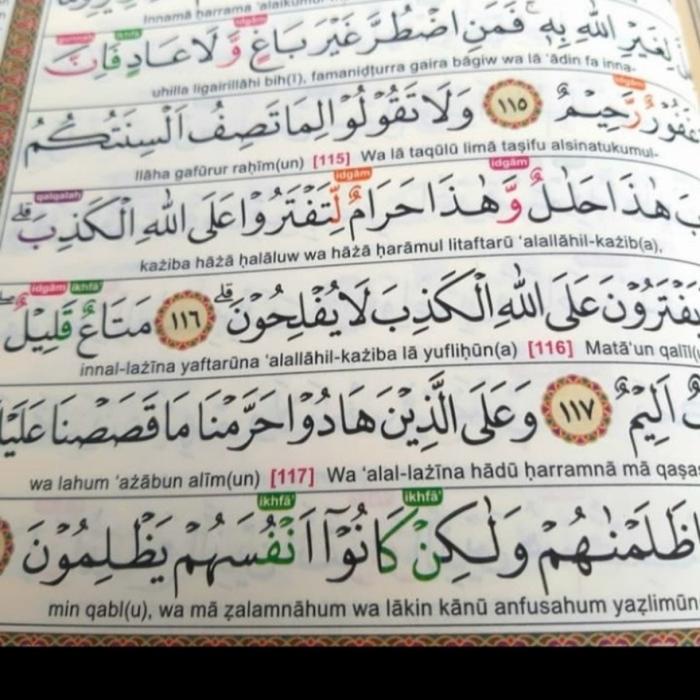 Innamā ḥarrama 'alaikumul
لِغَيْرِ اللّٰهِ بِهٖ ۚ فَمَنِ اضْطُرَّ غَيْرَ بَاغٍ وَّلَا عَادٍ فَاِنَّ
uhilla ligairillāhi bih(ī), famaniḍṭurra gaira bāgiw wa lā 'ādin fa inna-
غَفُوْرٌ رَّحِيْمٌ ١١٥ وَلَا تَقُوْلُوْا لِمَا تَصِفُ اَلْسِنَتُكُمُ
llāha gafūrur raḥīm(un) [115] Wa lā taqūlū limā taṣifu alsinatukumul-
هٰذَا حَلٰلٌ وَّهٰذَا حَرَامٌ لِّتَفْتَرُوْا عَلَى اللّٰهِ الْكَذِبَۗ
każiba hāżā ḥalāluw wa hāżā ḥarāmul litaftarū 'alallāhil-każib(a),
يَفْتَرُوْنَ عَلَى اللّٰهِ الْكَذِبَ لَا يُفْلِحُوْنَۗ ١١٦ مَتَاعٌ قَلِيْلٌ
innal-lażīna yaftarūna 'alallāhil-każiba lā yufliḥūn(a) [116] Matā'un qalīl
اَلِيْمٌ ١١٧ وَعَلَى الَّذِيْنَ هَادُوْا حَرَّمْنَا مَا قَصَصْنَا
wa lahum 'ażābun alīm(un) [117] Wa 'alal-lażīna hādū ḥarramnā mā qaṣa
ظَلَمْنٰهُمْ وَلٰكِنْ كَانُوْٓا اَنْفُسَهُمْ يَظْلِمُوْنَ
min qabl(u), wa mā ẓalamnāhum wa lākin kānū anfusahum yaẓlimūn